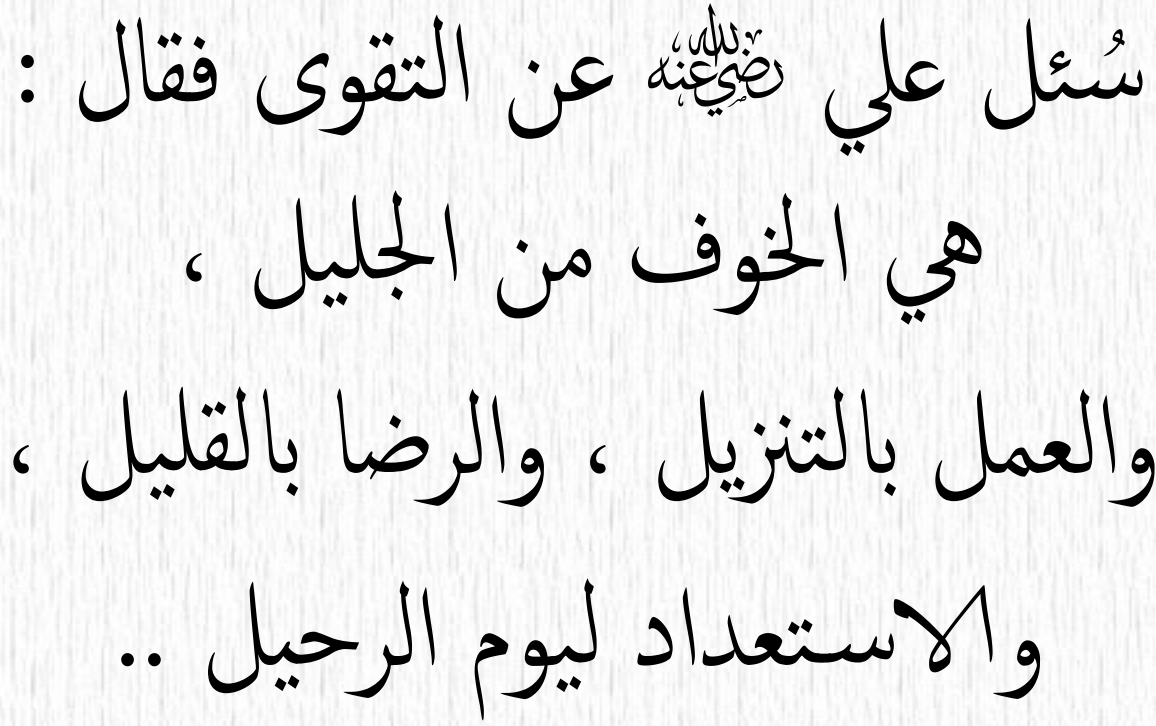 سُئل علي رضي الله عنه عن التقوى فقال :
هي الخوف من الجليل ،
والعمل بالتنزيل ، والرضا بالقليل ،
والاستعداد ليوم الرحيل ..